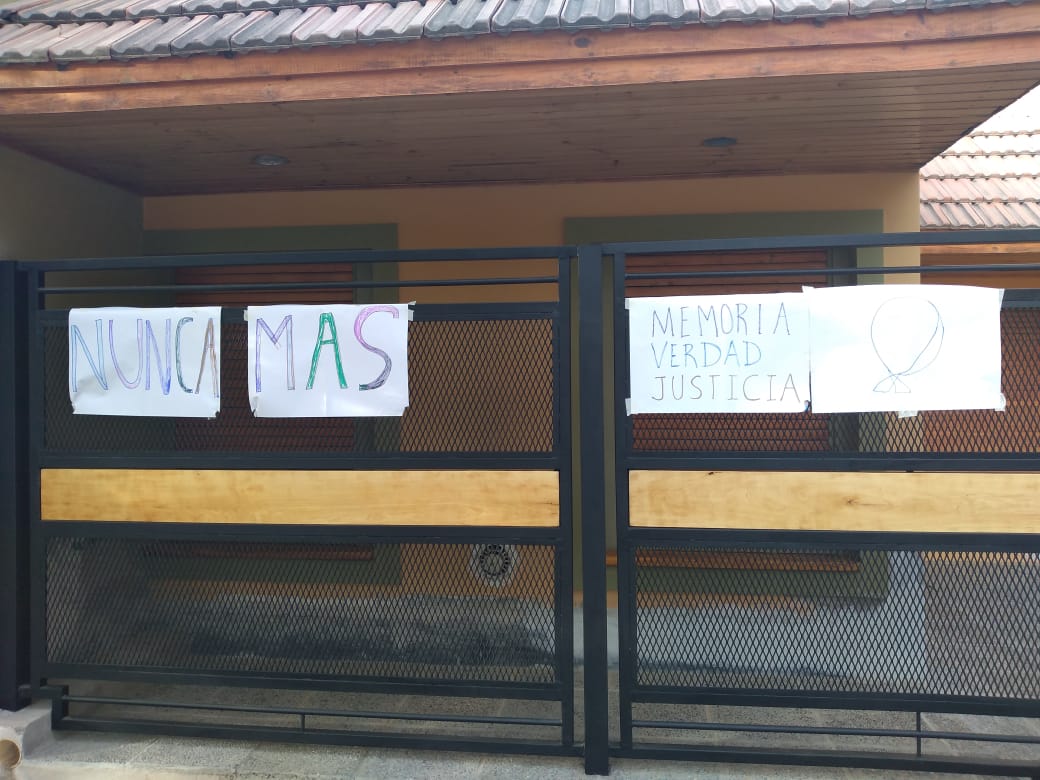 NUNCA
MAS
MEMORIA
VERDAD
JUSTICIA